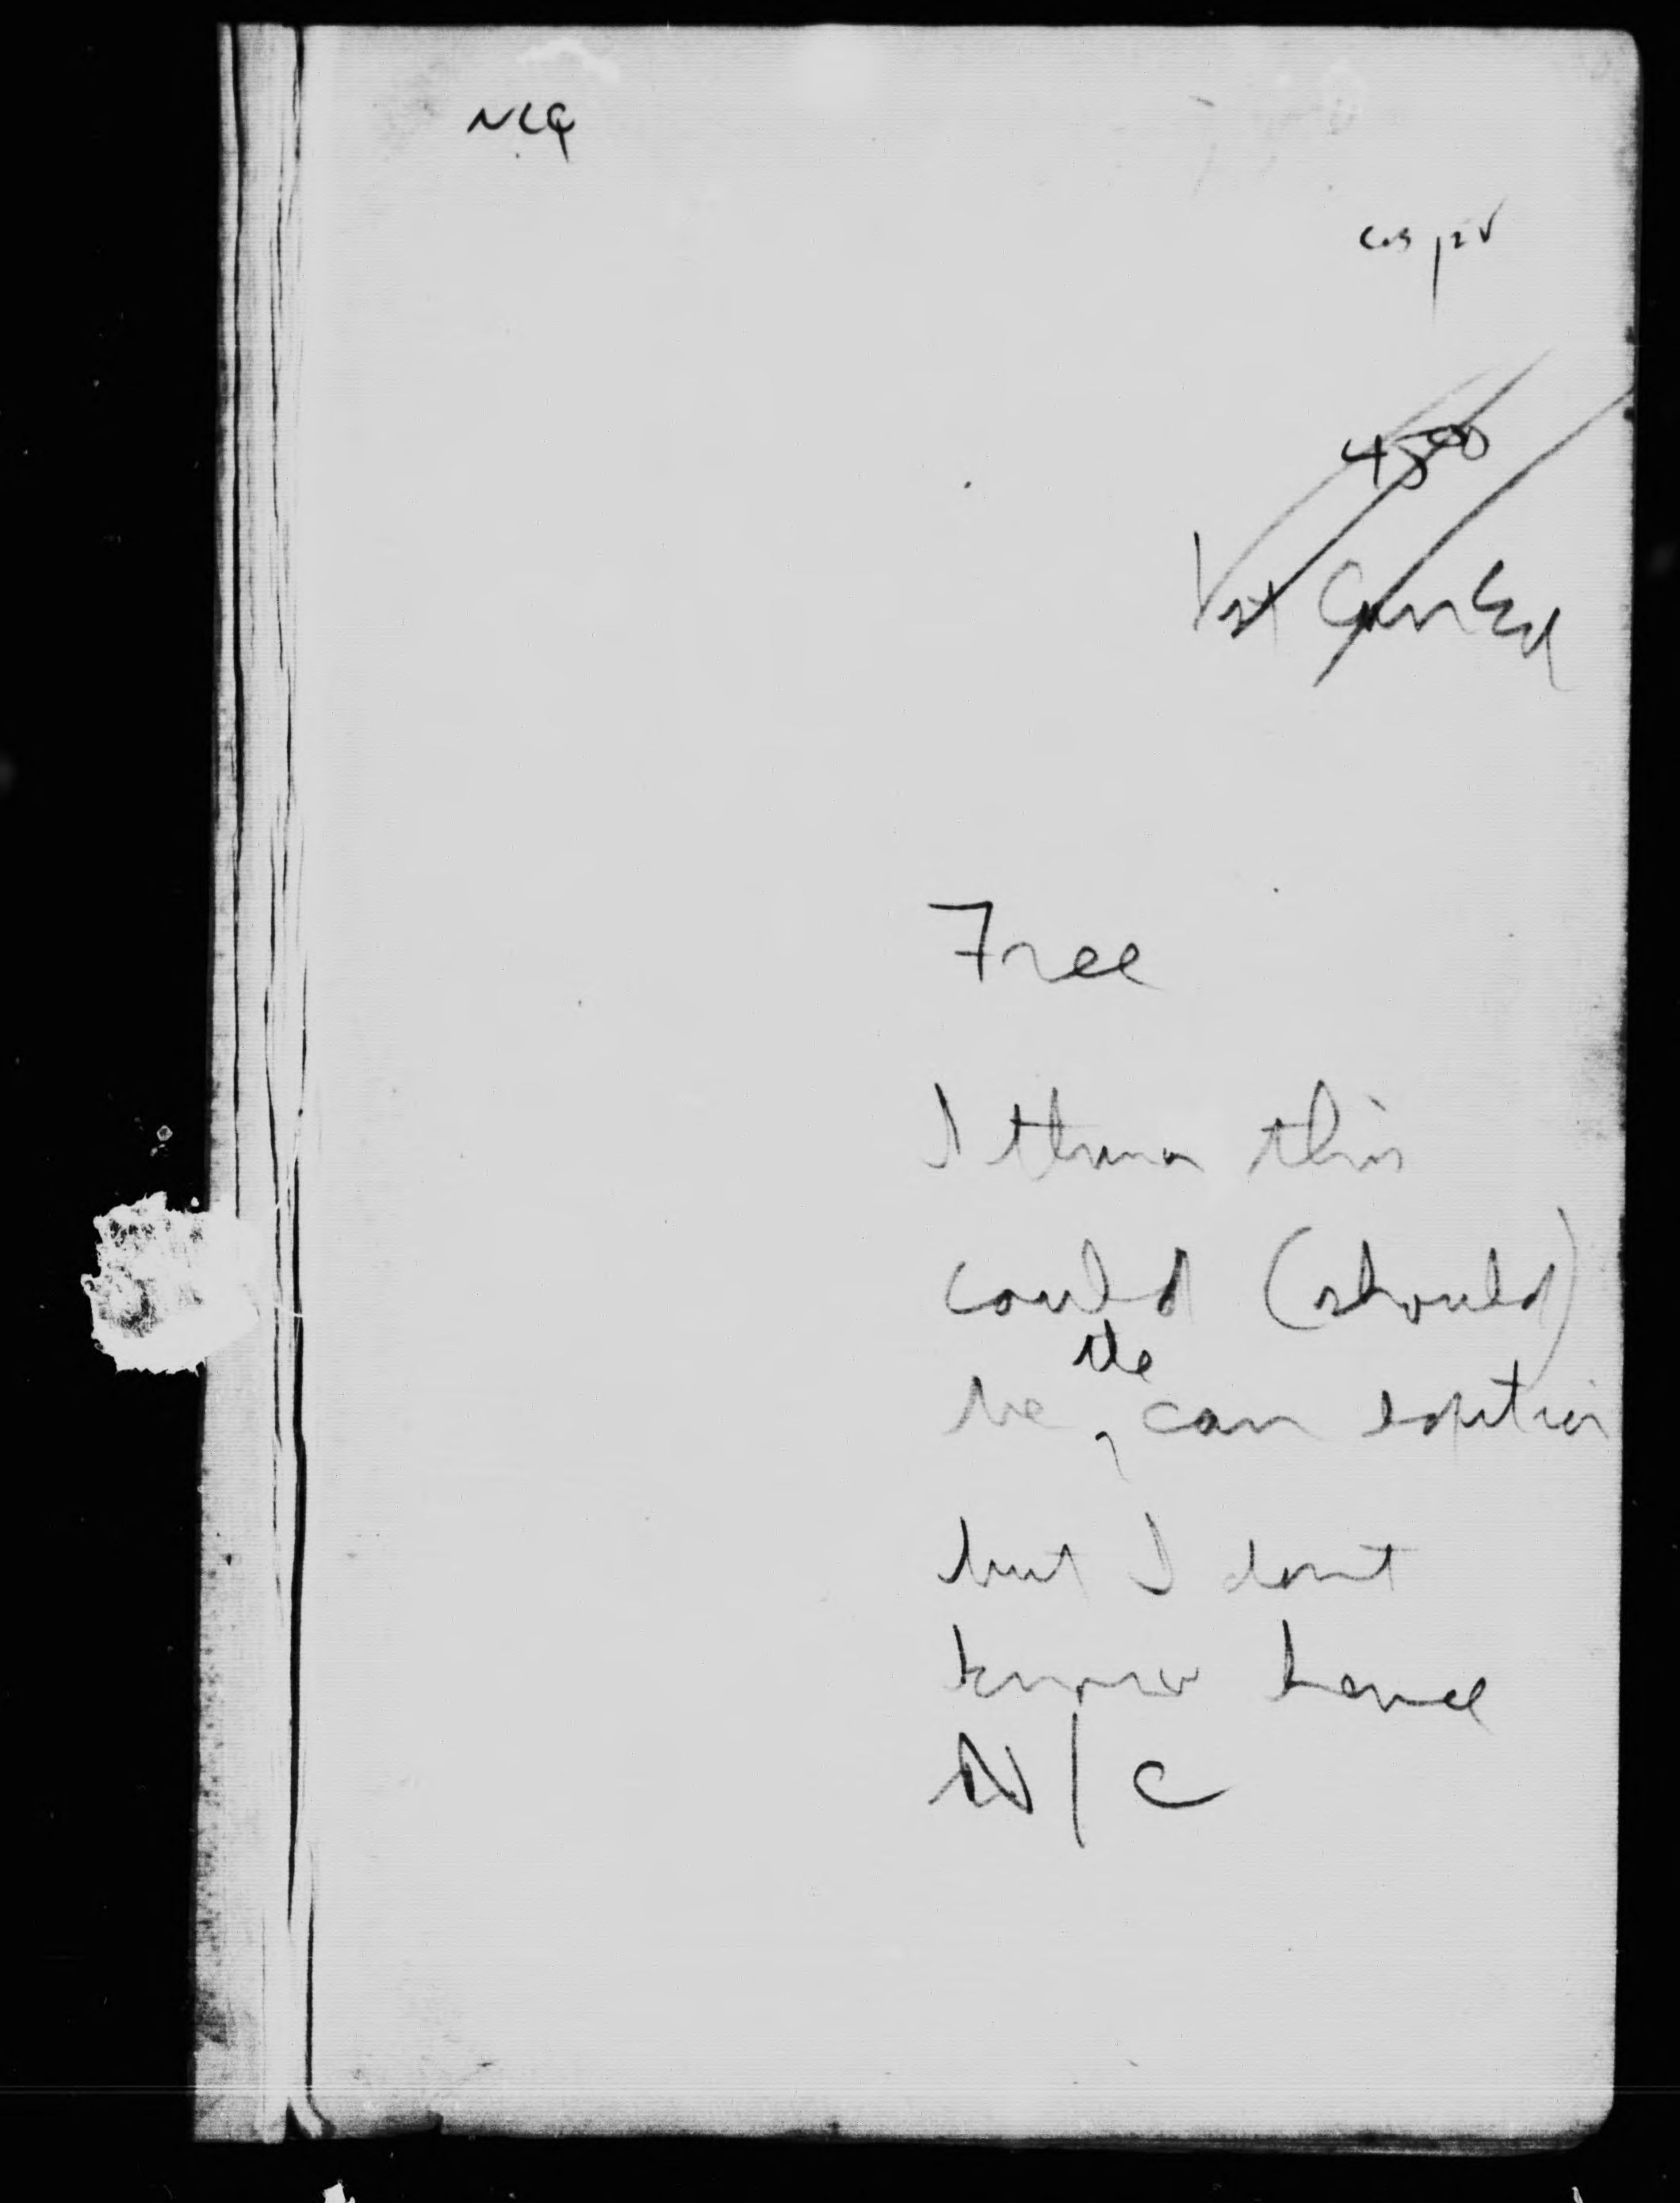 NCQ
4500
1st
Free
I think this
could (should)
be the can edition
but I dont
know hence
N/C